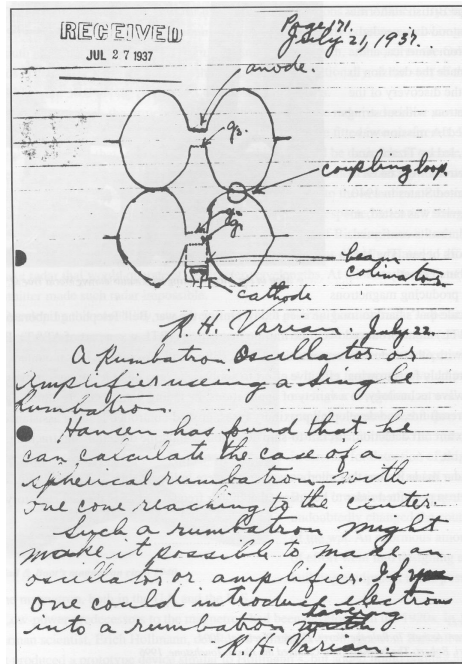 RECEIVED
JUL 27 1937
Page 171.
July 21, 1937.
anode.
g3
coupling loop
g2
g1
beam
colimator
cathode
R. H. Varian. July 22.
A Rumbatron Oscillator or
Amplifier useing a Single
Rumbatron.
Hansen has found that he
can calculate the case of a
spherical rumbatron with
one cone reaching to the center.
Such a rumbatron might
make it possible to make an
oscillator or amplifier. If
one could introduce electrons
into a rumbatron having
R. H. Varian.